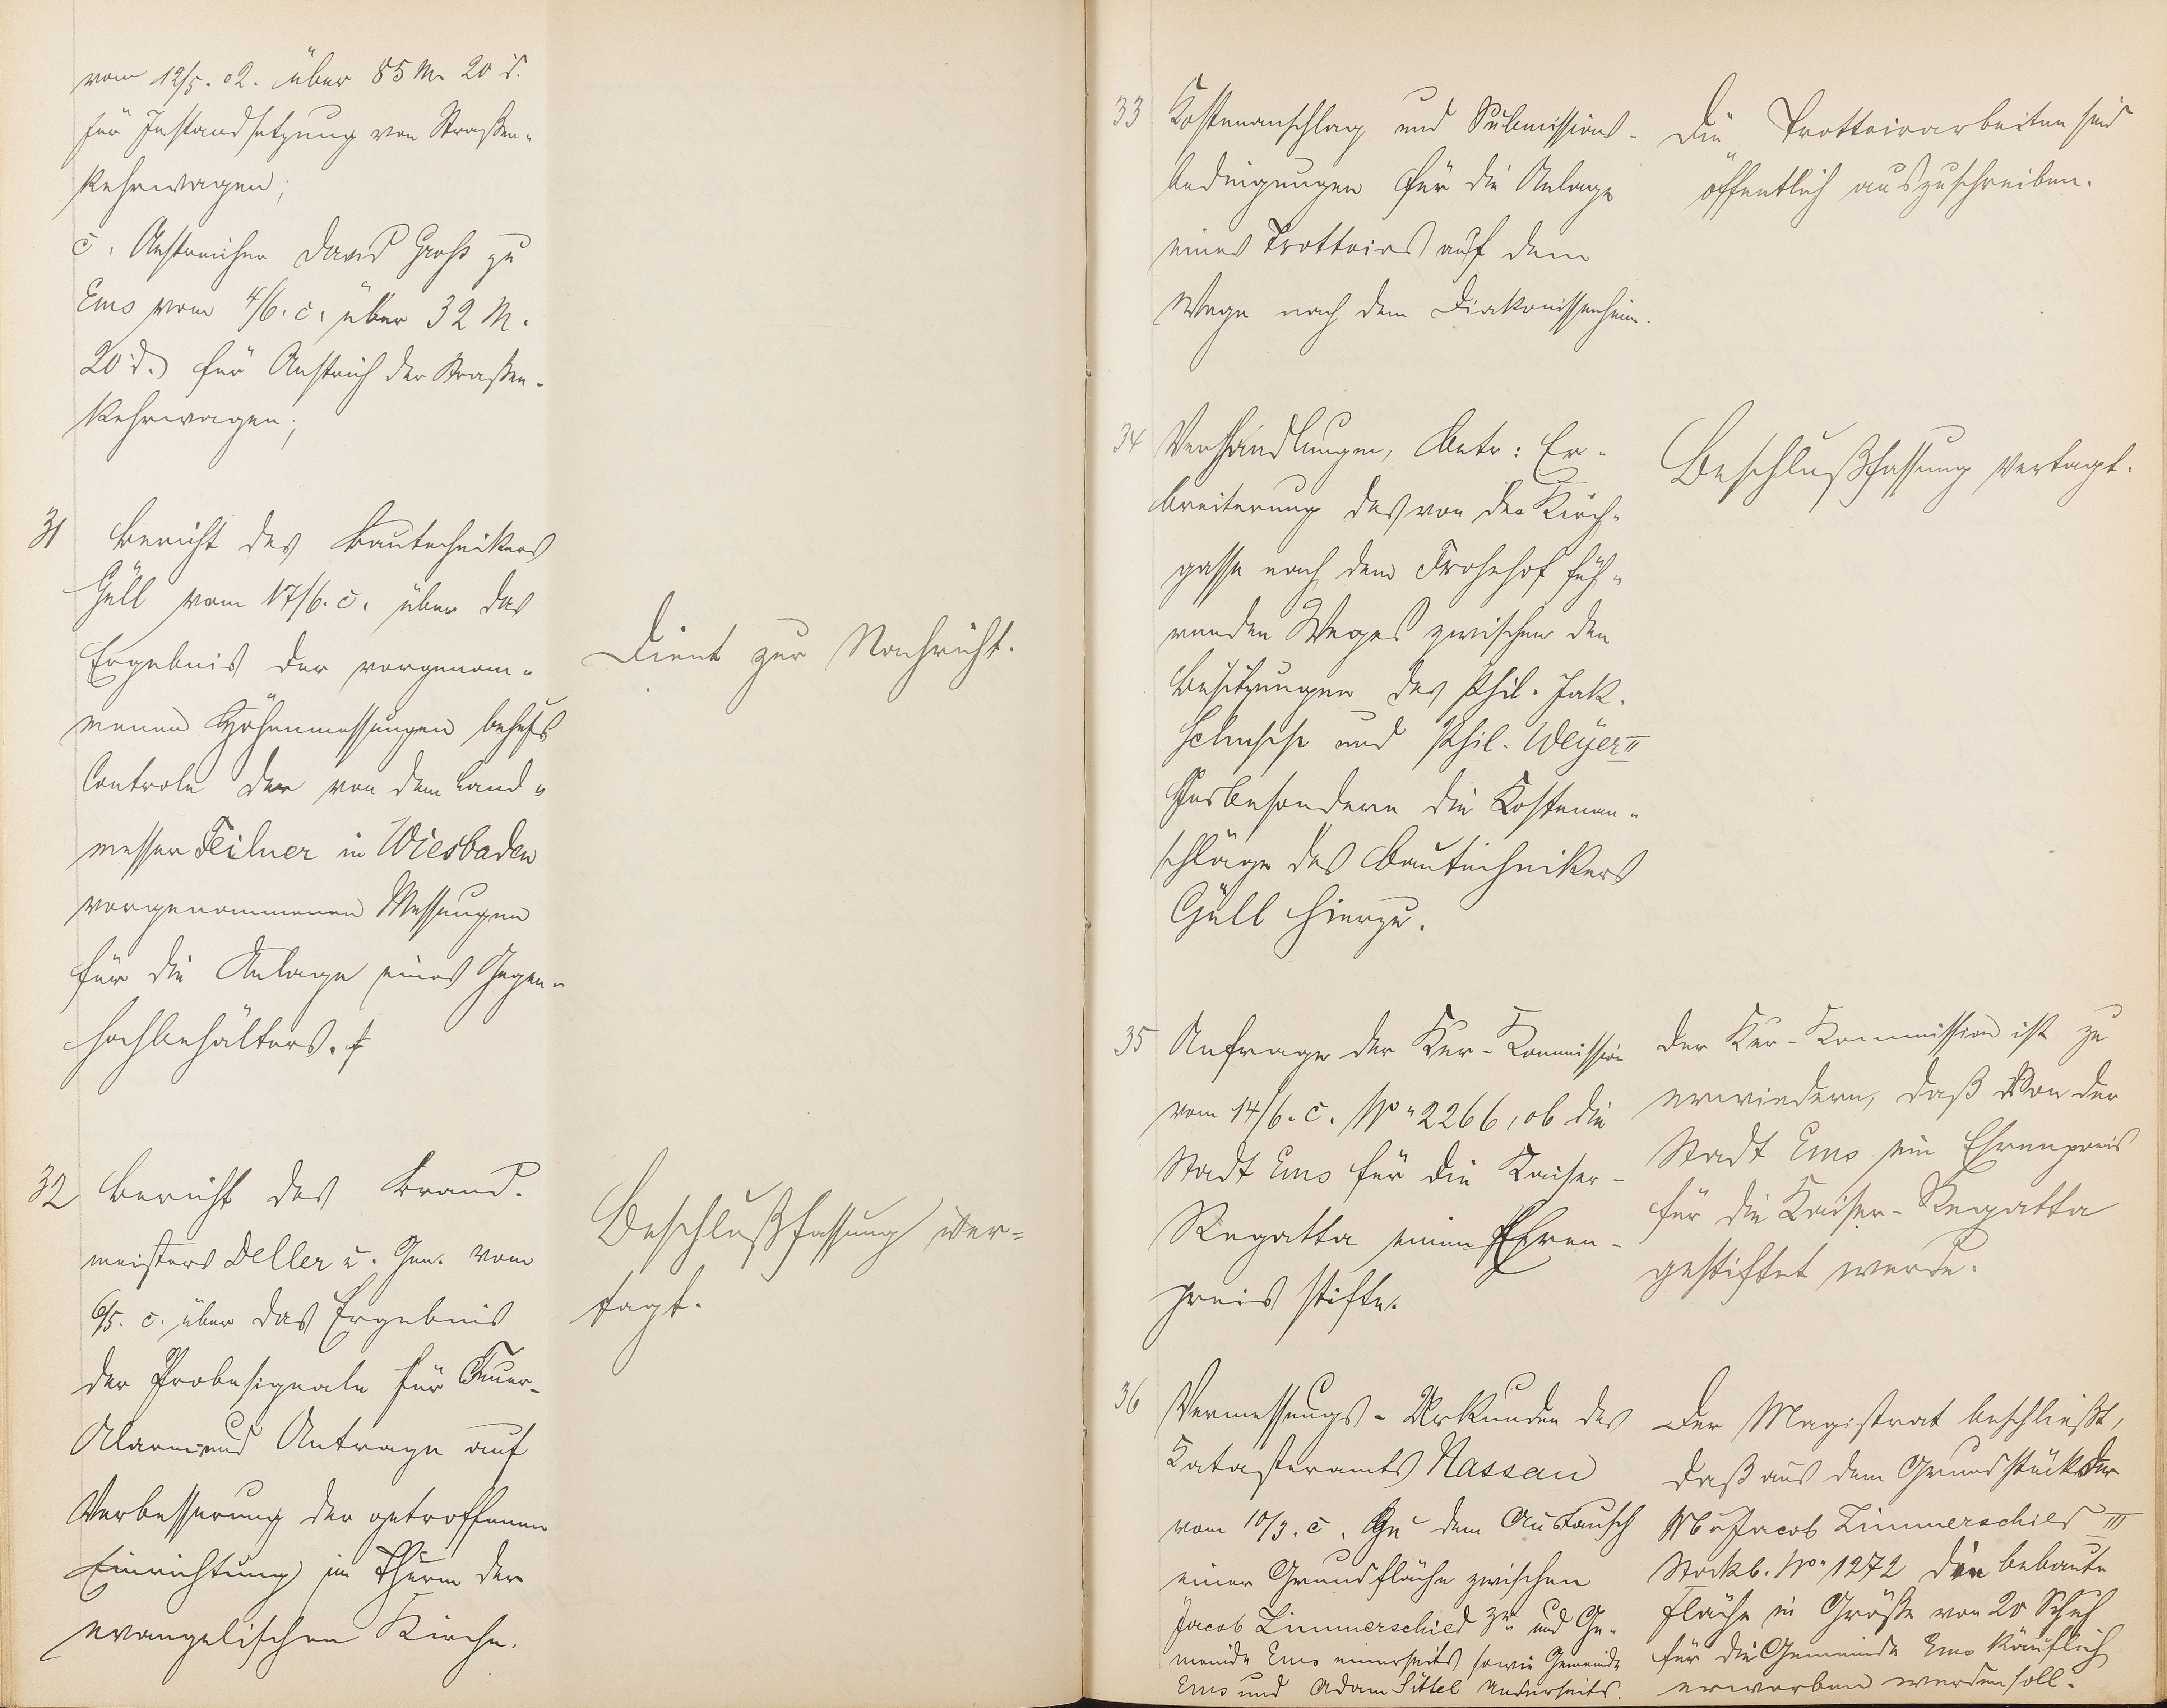 vom 12/5. 02. über 85 M. 20 d.
für Instandsetzung von Straßen-
kehrwagen;
c. Anstreicher David Groß zu
Ems vom 4/6. c. über 32 M.
20 d. für Anstrich der Straßen-
kehrwagen;
31 Bericht des Bautechnikers
Güll vom 17/6. c. über das
Ergebnis der vorgenom-
menen Höhenmessungen behufs
Controle der von dem Land-
messer Feilner in Wiesbaden
vorgenommenen Messungen
für die Anlage eines Gegen-
hochbehälters.
Dient zur Nachricht.
32 Bericht des Brand-
meisters Deller u. Gen. vom
6/5. c. über das Ergebnis
der Probesignale für Feuer-
Alarm und Antrage auf
Verbesserung der getroffenen
Einrichtung im Thurm der
evangelischen Kirche.
Beschlußfassung ver-
tagt.
33 Kostenanschlag und Submissions-
bedingungen für die Anlage
eines Trottoirs auf dem
Wege nach dem Diakonissenheim.
Die Trottoirarbeiten sind
öffentlich auszuschreiben.
34 Verhandlungen, betr: Er-
breiterung des von der Kirch-
gasse nach dem Frohnhof füh-
renden Weges zwischen den
Besitzungen des Phil. Jak.
und Phil. Weyer II
Insbesondere die Kostenan-
schläge des Bautechnikers
Güll hierzu.
Beschlußfassung vertagt.
35 Anfrage der Kur-Kommission
vom 14/6. c. No 2266, ob die
Stadt Ems für die Kaiser-
Regatta einen Ehren-
preis stifte.
Der Kur-Kommission ist zu
erwiedern, daß von der
Stadt Ems ein Ehrenpreis
für die Kaiser-Regatta
gestiftet werde.
36 Vermessungs-Urkunden des
Katasteramts Nassau
vom 10/3. c. zu dem Austausch
einer Grundfläche zwischen
Jacob Linnerschied 3r und Ge-
meinde Ems einerseits sowie Gemeinde
Ems und Adam Sittel Anderseits.
Der Magistrat beschließt,
daß aus dem Grundstück der
Jacob Linnerschied III
Stockb. No 1272 die bebaute
Fläche in Größe von 20 Schuh
für die Gemeinde Ems käuflich
erworben werden soll.